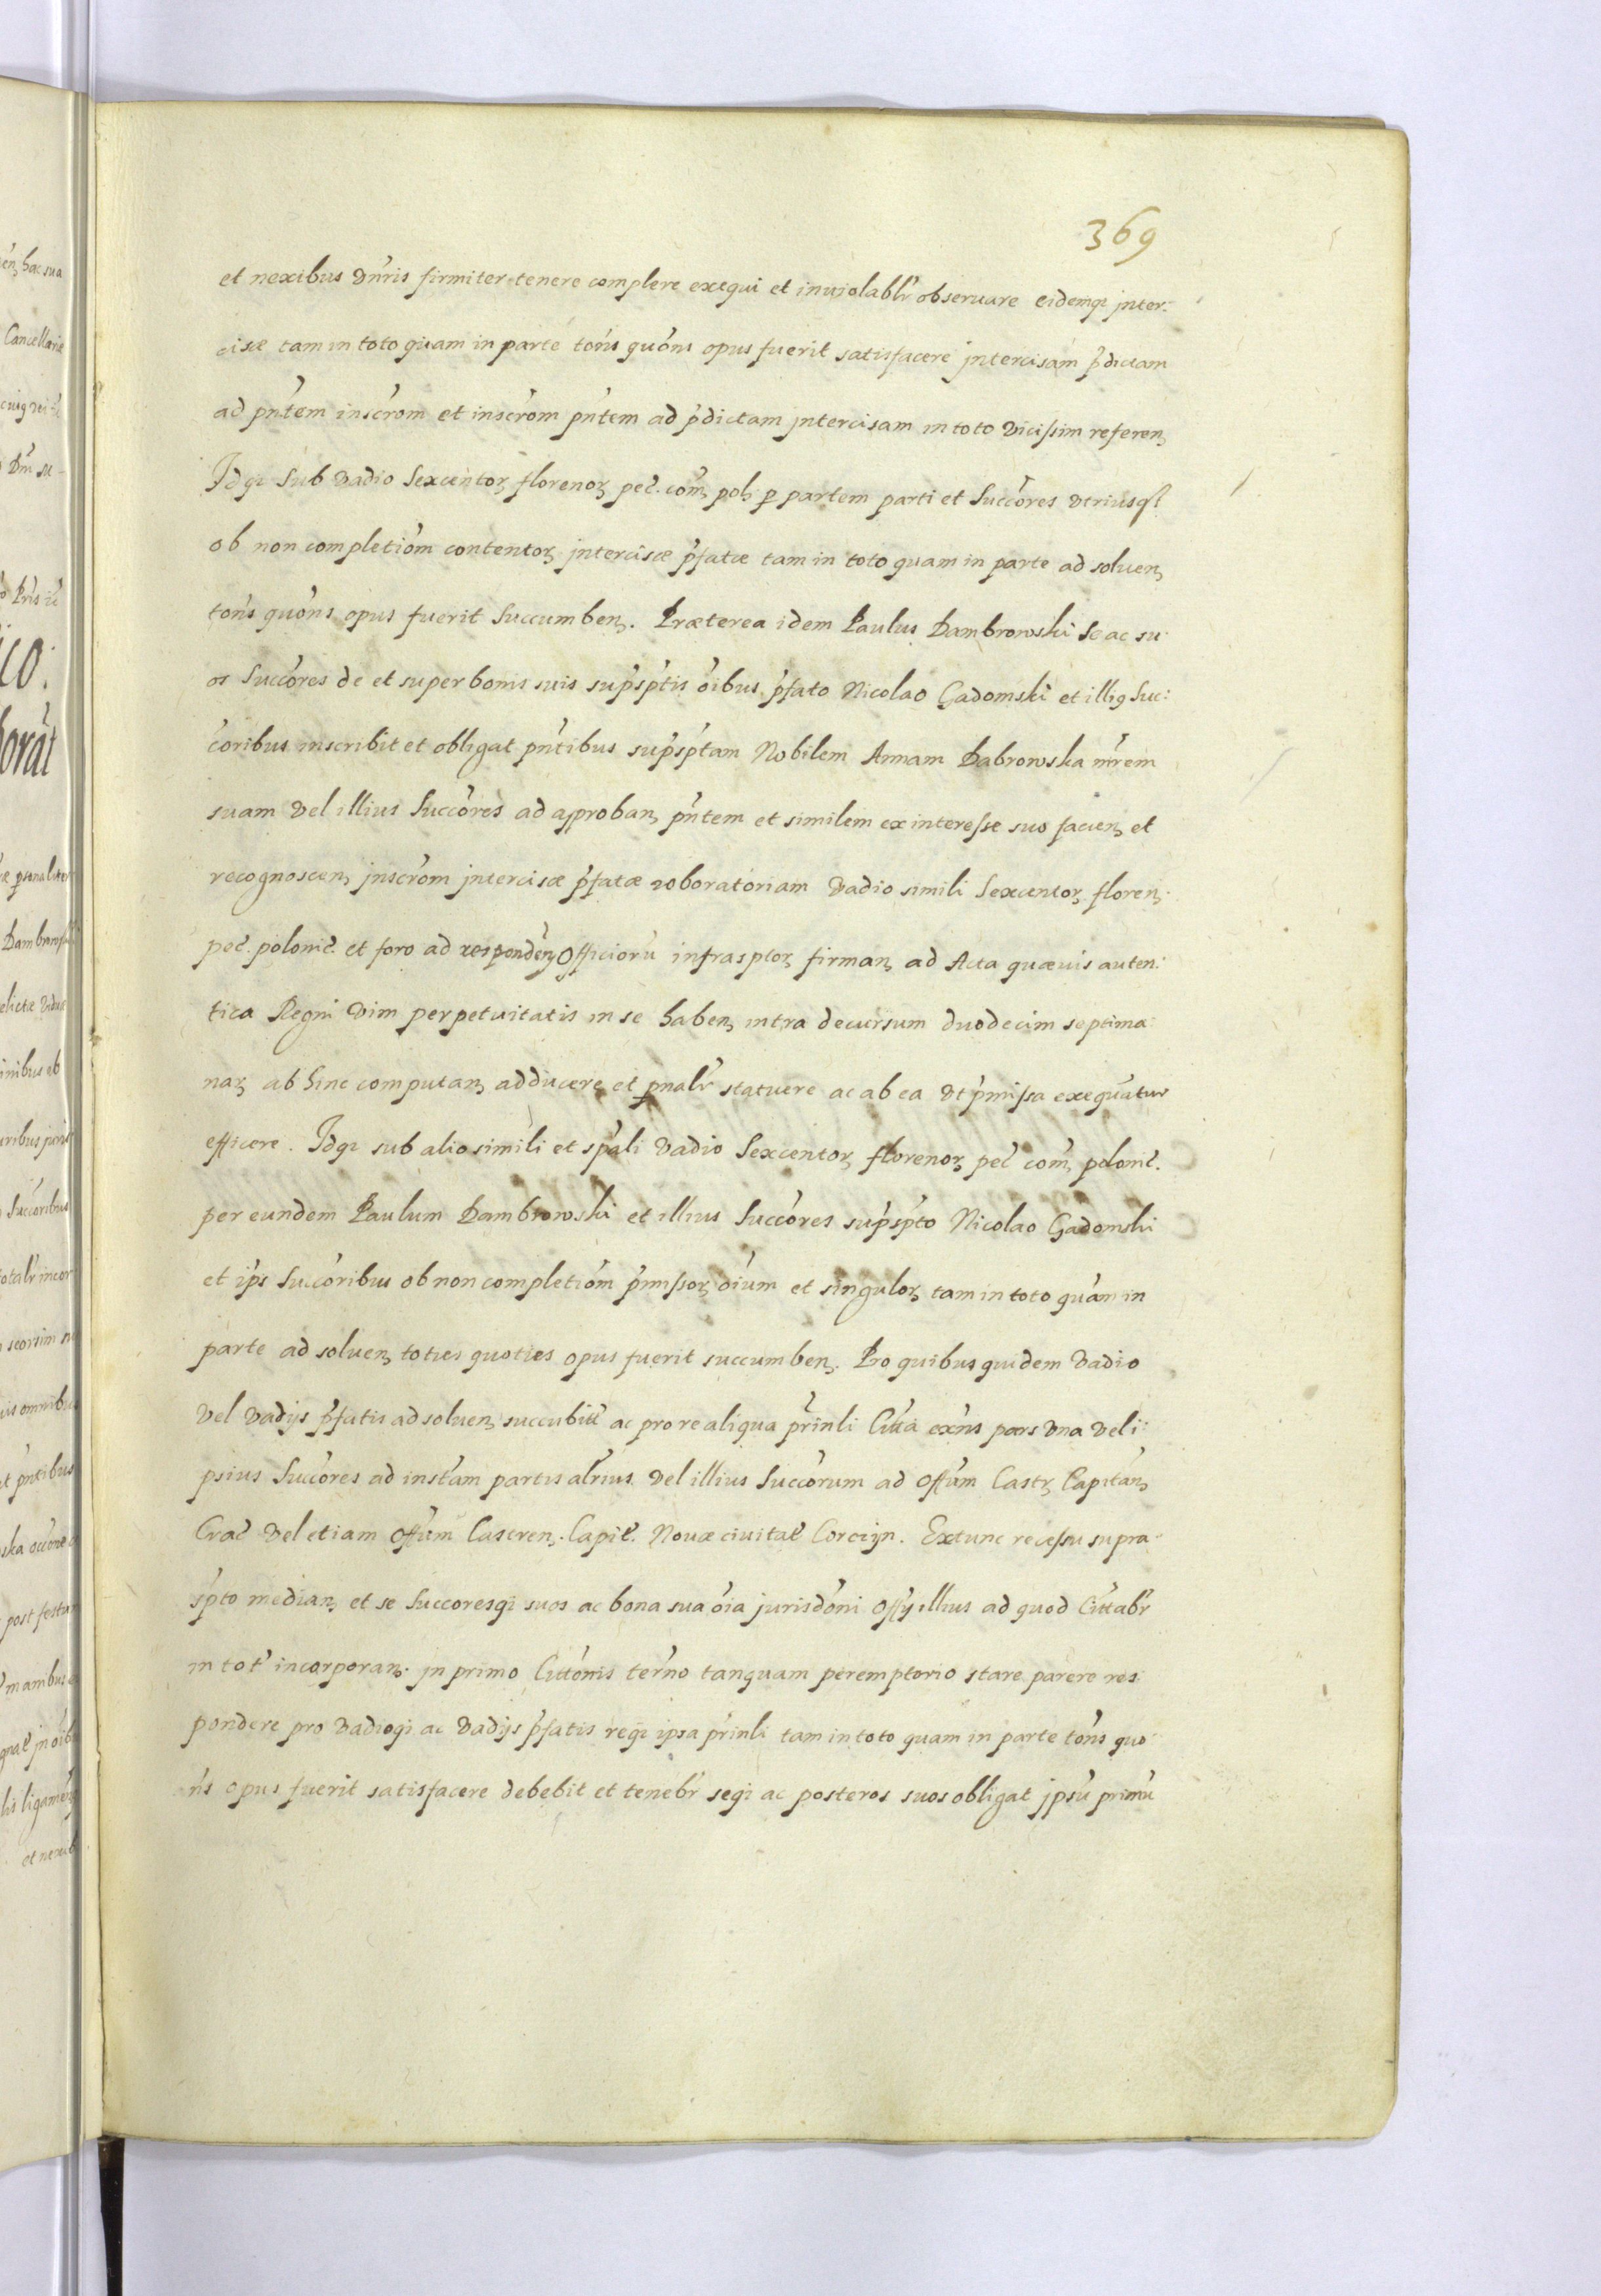 369
et nexibus dnris firmiter tenere complere exequi et inuiolablr obseruare eidemqz jnter:
cisæ tam in toto quam in parte tons quóns opus fuerit satisfacere jntercisam pdictam
ad pntem inscrom et inscrom pntem ad pdictam jntercisam in toto vicissim referen.
Idqz sub vadio sexcentor. florenor. pec. com. pol. p partem parti et succores vtriusqz
ob non completiom contentor. jntercisæ pfatæ tam in toto quam in parte ad soluen.
tons quóns opus fuerit succumben. Præterea idem Paulus Dambrowski se ac su:
os succores de et super bonis suis supsptis oibus pfato Nicolao Gadomski et illi9 suc:
coribus inscribit et obligat pntibus supsptam Nobilem Annam Dabrowska mrem
suam vel illius succores ad approban. pntem et similem ex interesse suo facien. et
recognoscen. jnscrom jntercisæ pfatæ roboratoriam vadio simili sexcentor. floren.
pec. polonic. et foro ad responden. Officioru infrasptor. firman. ad Acta quæuis auten:
tica Regni vim perpetuitatis in se haben. intra decursum duodecim septima:
nar. ab hinc computan. adducere et psnalr statuere ac ab ea vt pmissa exequatur
efficere. Idqz sub alio simili et spali vadio sexcentor. florenor. pec com. polonic.
per eundem Paulum Dambrowski et illius succores supspto Nicolao Gadomski
et ips succoribus ob non completiom pmissor. oium et singulor. tam in toto quam in
parte ad soluen. toties quoties opus fuerit succumben. Pro quibus quidem vadio
vel vadijs pfatis ad soluen. succubitt ac pro re aliqua prinli Citta exns pars vna vel i:
psius succores ad instam partis alrius vel illius succorum ad Offum Castr. Capitan.
Crac vel etiam Offum Castren. Capit. Nouæ ciuitat Corczyn. Extunc recessu supra
spto median. et se succoresqz suos ac bona sua oia jurisdoni Offy illius ad quod Cittabr
in tot incorporan. jn primo Cittonis terno tanquam peremptorio stare parere res:
pondere pro vadioqz ac vadijs pfatis reqz ipsa prinli tam in toto quam in parte tons quo:
ns opus fuerit satisfacere debebit et tenebr seqz ac posteros suos obligat jpsu primu